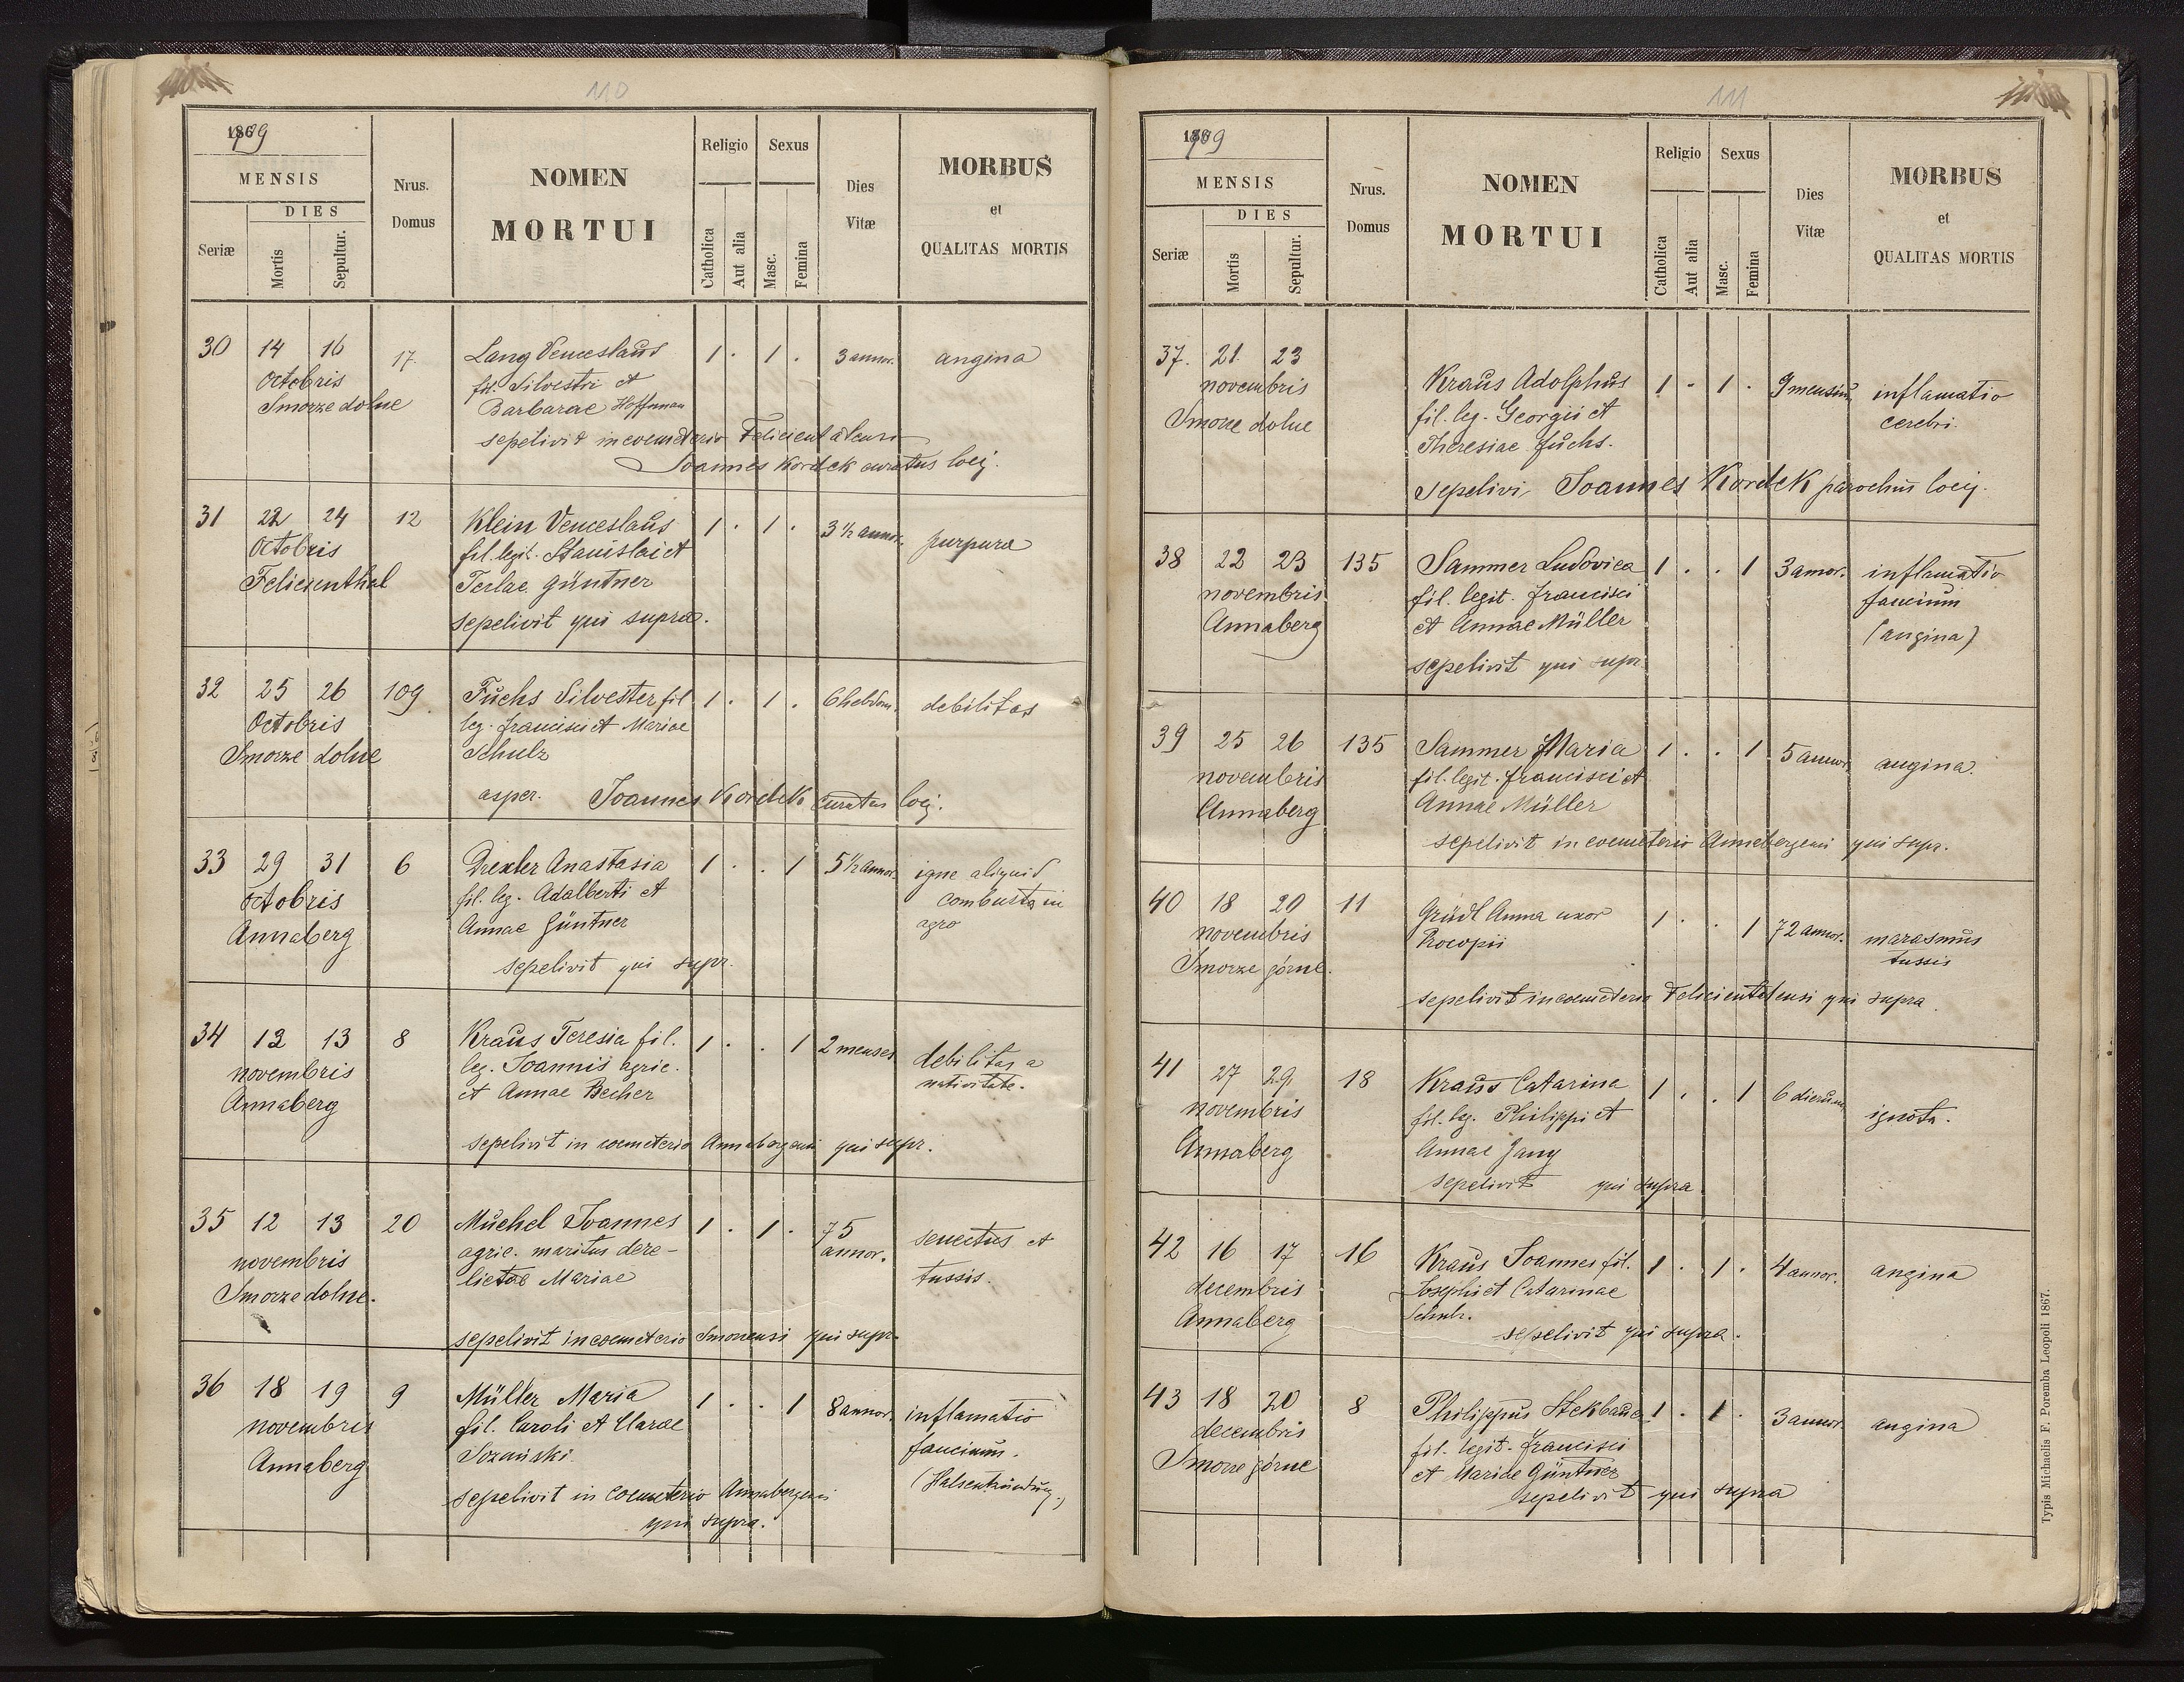 110
1879
MENSIS
DIES
Seriæ
Mortis
Sepultur.
Nrus.
Domus
NOMEN
MORTUI
Religio
Sexus
Catholica
Aut alia
Masc.
Femina
Dies
Vitæ
MORBUS
et
QUALITAS MORTIS
30 14 16 17. Lang Venceslaus 1 . 1 . 3 annor. angina
Octobris fil. Silvestri et
Smorze dolne Barbarae Hoffman
sepelivit in coemeterio Felicientalensi
Joannes Kordek curatus loci.
31 22 24 12 Klein Venceslaus 1 . 1 . 3 1/2 annor. purpura
Octobris fil. legit. Stanislai et
Felicienthal Teclae Güntner
sepelivit qui supra.
32 25 26 109 Fuchs Silvester fil 1 . 1 . 6 hebdom. debilitas
Octobris leg. Francisci et Mariae
Smorze dolne Schulz
asper. Joannes Kordek curatus loci.
33 29 31 6 Drexler Anastasia 1 . . 1 5 1/2 annor. igne aliquid
octobris fil. leg. Adalberti et combusta in
Annaberg Annae Güntner agro
sepelivit qui supr.
34 12 13 8 Kraus Teresia fil. 1 . . 1 2 menses debilitas a
novembris leg. Joannis agric. nativitate.
Annaberg et Annae Becher
sepelivit in coemeterio Annabergensi qui supr.
35 12 13 20 Muchel Joannes 1 . 1 . 75 senectus et
novembris agric. maritus dere- annor. tussis.
Smorze dolne. lictae Mariae
sepelivit in coemeterio Smorzensi qui supr.
36 18 19 9 Müller Maria 1 . . 1 8 annor. inflamatio
novembris fil. Caroli et Clarae faucium.
Annaberg Sozański (Halsentzündung.)
sepelivit in coemeterio Annabergensi
qui supra.
111
1879
MENSIS
DIES
Seriæ
Mortis
Sepultur.
Nrus.
Domus
NOMEN
MORTUI
Religio
Sexus
Catholica
Aut alia
Masc.
Femina
Dies
Vitæ
MORBUS
et
QUALITAS MORTIS
37. 21. 23 Kraus Adolphus 1 . 1 . 9 mensium inflamatio
novembris fil. leg. Georgii et cerebri.
Smorze dolne Theresiae Fuchs.
sepelivi Joannes Kordek parochus loci.
38 22 23 135 Sammer Ludovica 1 . . 1 3 annor. inflamatio
novembris fil. legit. Francisci faucium
Annaberg et Annae Müller (angina)
sepelivit qui supr.
39 25 26 135 Sammer Maria 1 . . 1 5 annor. angina.
novembris fil. legit. Francisci et
Annaberg Annae Müller
sepelivit in coemeterio Annebergensi qui supr.
40 18 20 11 Grüdl Anna uxor 1 . . 1 72 annor. marasmus
novembris Procopii tussis
Smorze górne.
sepelivit in coemeterio Felicientelensi qui supra.
41 27 29 18 Kraus Catarina 1 . . 1 6 dierum ignota.
novembris fil. leg. Philippi et
Annaberg Annae Jany
sepelivit qui supra
42 16 17 16 Kraus Joannes fil. 1 . 1 . 4 annor. angina
decembris Josephi et Catarinae
Annaberg Schulz.
sepelivit qui supra.
43 18 20 8 Philippus Stekbauer 1 . 1 . 3 annor. angina
decembris fil. legit. Francisci
Smorze górne et Mariae Güntner
sepelivit qui supra
Typis Michaelis F. Poremba Leopoli 1867.